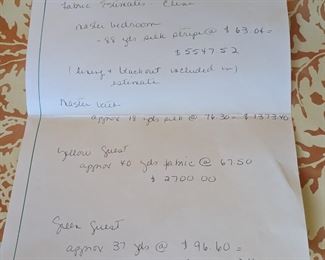 Fabric Estimates -
Master bedroom
- 88 yds silk stripe @ $63.04 =
$5547.52
(lining & blackout included in)
estimate
Master bath
approx 18 yds silk @ 76.30 = $1373.40
Yellow Guest
approx 40 yds fabric @ 67.50
$2700.00
Green Guest
approx 37 yds @ $96.60 =